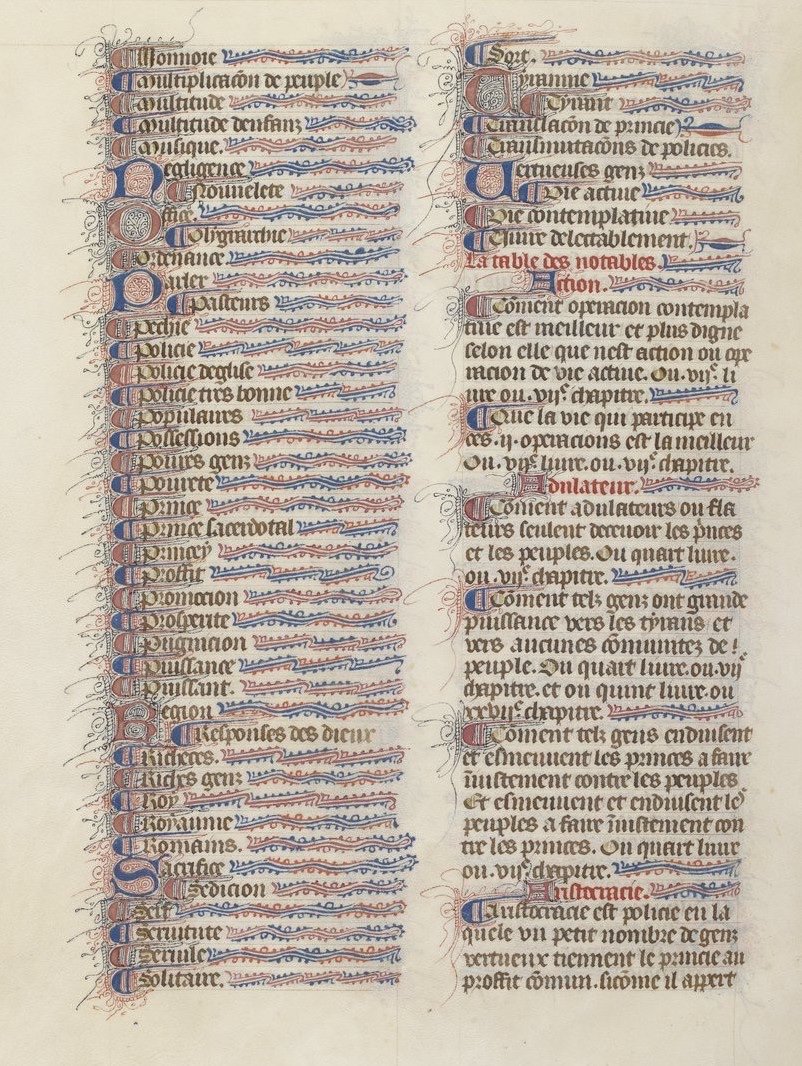 Monnoie
Multiplicacõn de peuple
Multitude
Multitude denfanz
Musique.
Negligence
Nouuelete
Office.
Olygarchie
Ordenance.
Parler
Pasteurs
Pechie
Policie
Policie deglise
Policie tres bonne
Populaires
Possessions
Poures genz
Pourete
Prince
Prince sacerdotal
Princey
Proffit
Promocion
Prosperite
Pugnicion
Puissance
Puissant.
Region
Responses des dieux
Richeces.
Riches genz
Roy
Royaume
Romains.
Sacrifice
Sedicion
Seit
Seruitute
Seruile
Solitaire.
Sort.
Tyrannie
Tyrant
Translacõn de princie
Transmutacõns de policies.
Uertueuses genz
Vie actiue
Vie contemplatiue
Viure delectablement.
La table des notables
Action.
Cõment operacion contempla
tiue est meilleur et plus digne
selon elle que nest action ou ope
racion de vie actiue. Ou .viie. li
ure ou .viie. chapitre.
Que la vie qui participe en
ces .ii. operacions est la meilleur
Ou .viie. liure. ou .viie. chapitre.
Adulateur.
Cõment adulateurs ou fla
teurs seulent deceuoir les p̃nces
et les peuples. Ou quart liure.
ou .viie. chapitre.
Cõment telz genz ont grande
puissance vers les tyrans et
vers aucunes cõmunitez de
peuple. Ou quart liure. ou .viie
chapitre. et ou quint liure. ou
xxviie. chapitre.
Cõment telz gens enduisent
et esmeuuent les princes a faire
iniustement contre les peuples
Et esmeuuent et enduisent les
peuples a faire iniustement con
tre les princes. Ou quart liure
ou .viie. chapitre.
Aristocracie.
Aristocracie est policie en la
quele vn petit nombre de genz
vertueux tiennent le princie au
proffit cõmun. sicõme il appert